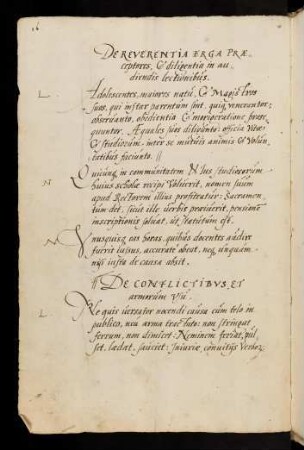 DE REVERENTIA ERGA PRÆ
ceptores, & diligentia in au
diendis lectionibus.
Adolescentes, maiores natu, & Magistros
suos, qui instar parentum sint, quique venerantor
observanto, obedientia & morigeratione prose
quuntor. Æquales suos diligunto: officia vitæ
& studiorum, inter se mutuis animis & volun
tatibus faciunto.
Quicunque in communitatem studiosorum
N
huius scholæ recipi voluerit, nomen suum
apud Rectorem illius profitetur: Sacramen
tum det, sicut ille verbis præiverit, pensionem
inscriptionis soluat, ut statutum est.
N
Unusquisque eas horas, quibus docentes audire
fuerit iussus, accurate obeat, neque unquam
nisi iusta de causa absit.
DE CONFLICTIBVS, ET
armorum
L
Ne quis iuxgator nocendi causa cum telo in
publico, neu arma tractato: non stringat
ferrum, non dimicet. Neminem feriat, pul
set, lædat, sauciet: Iniuriæ, convitijs